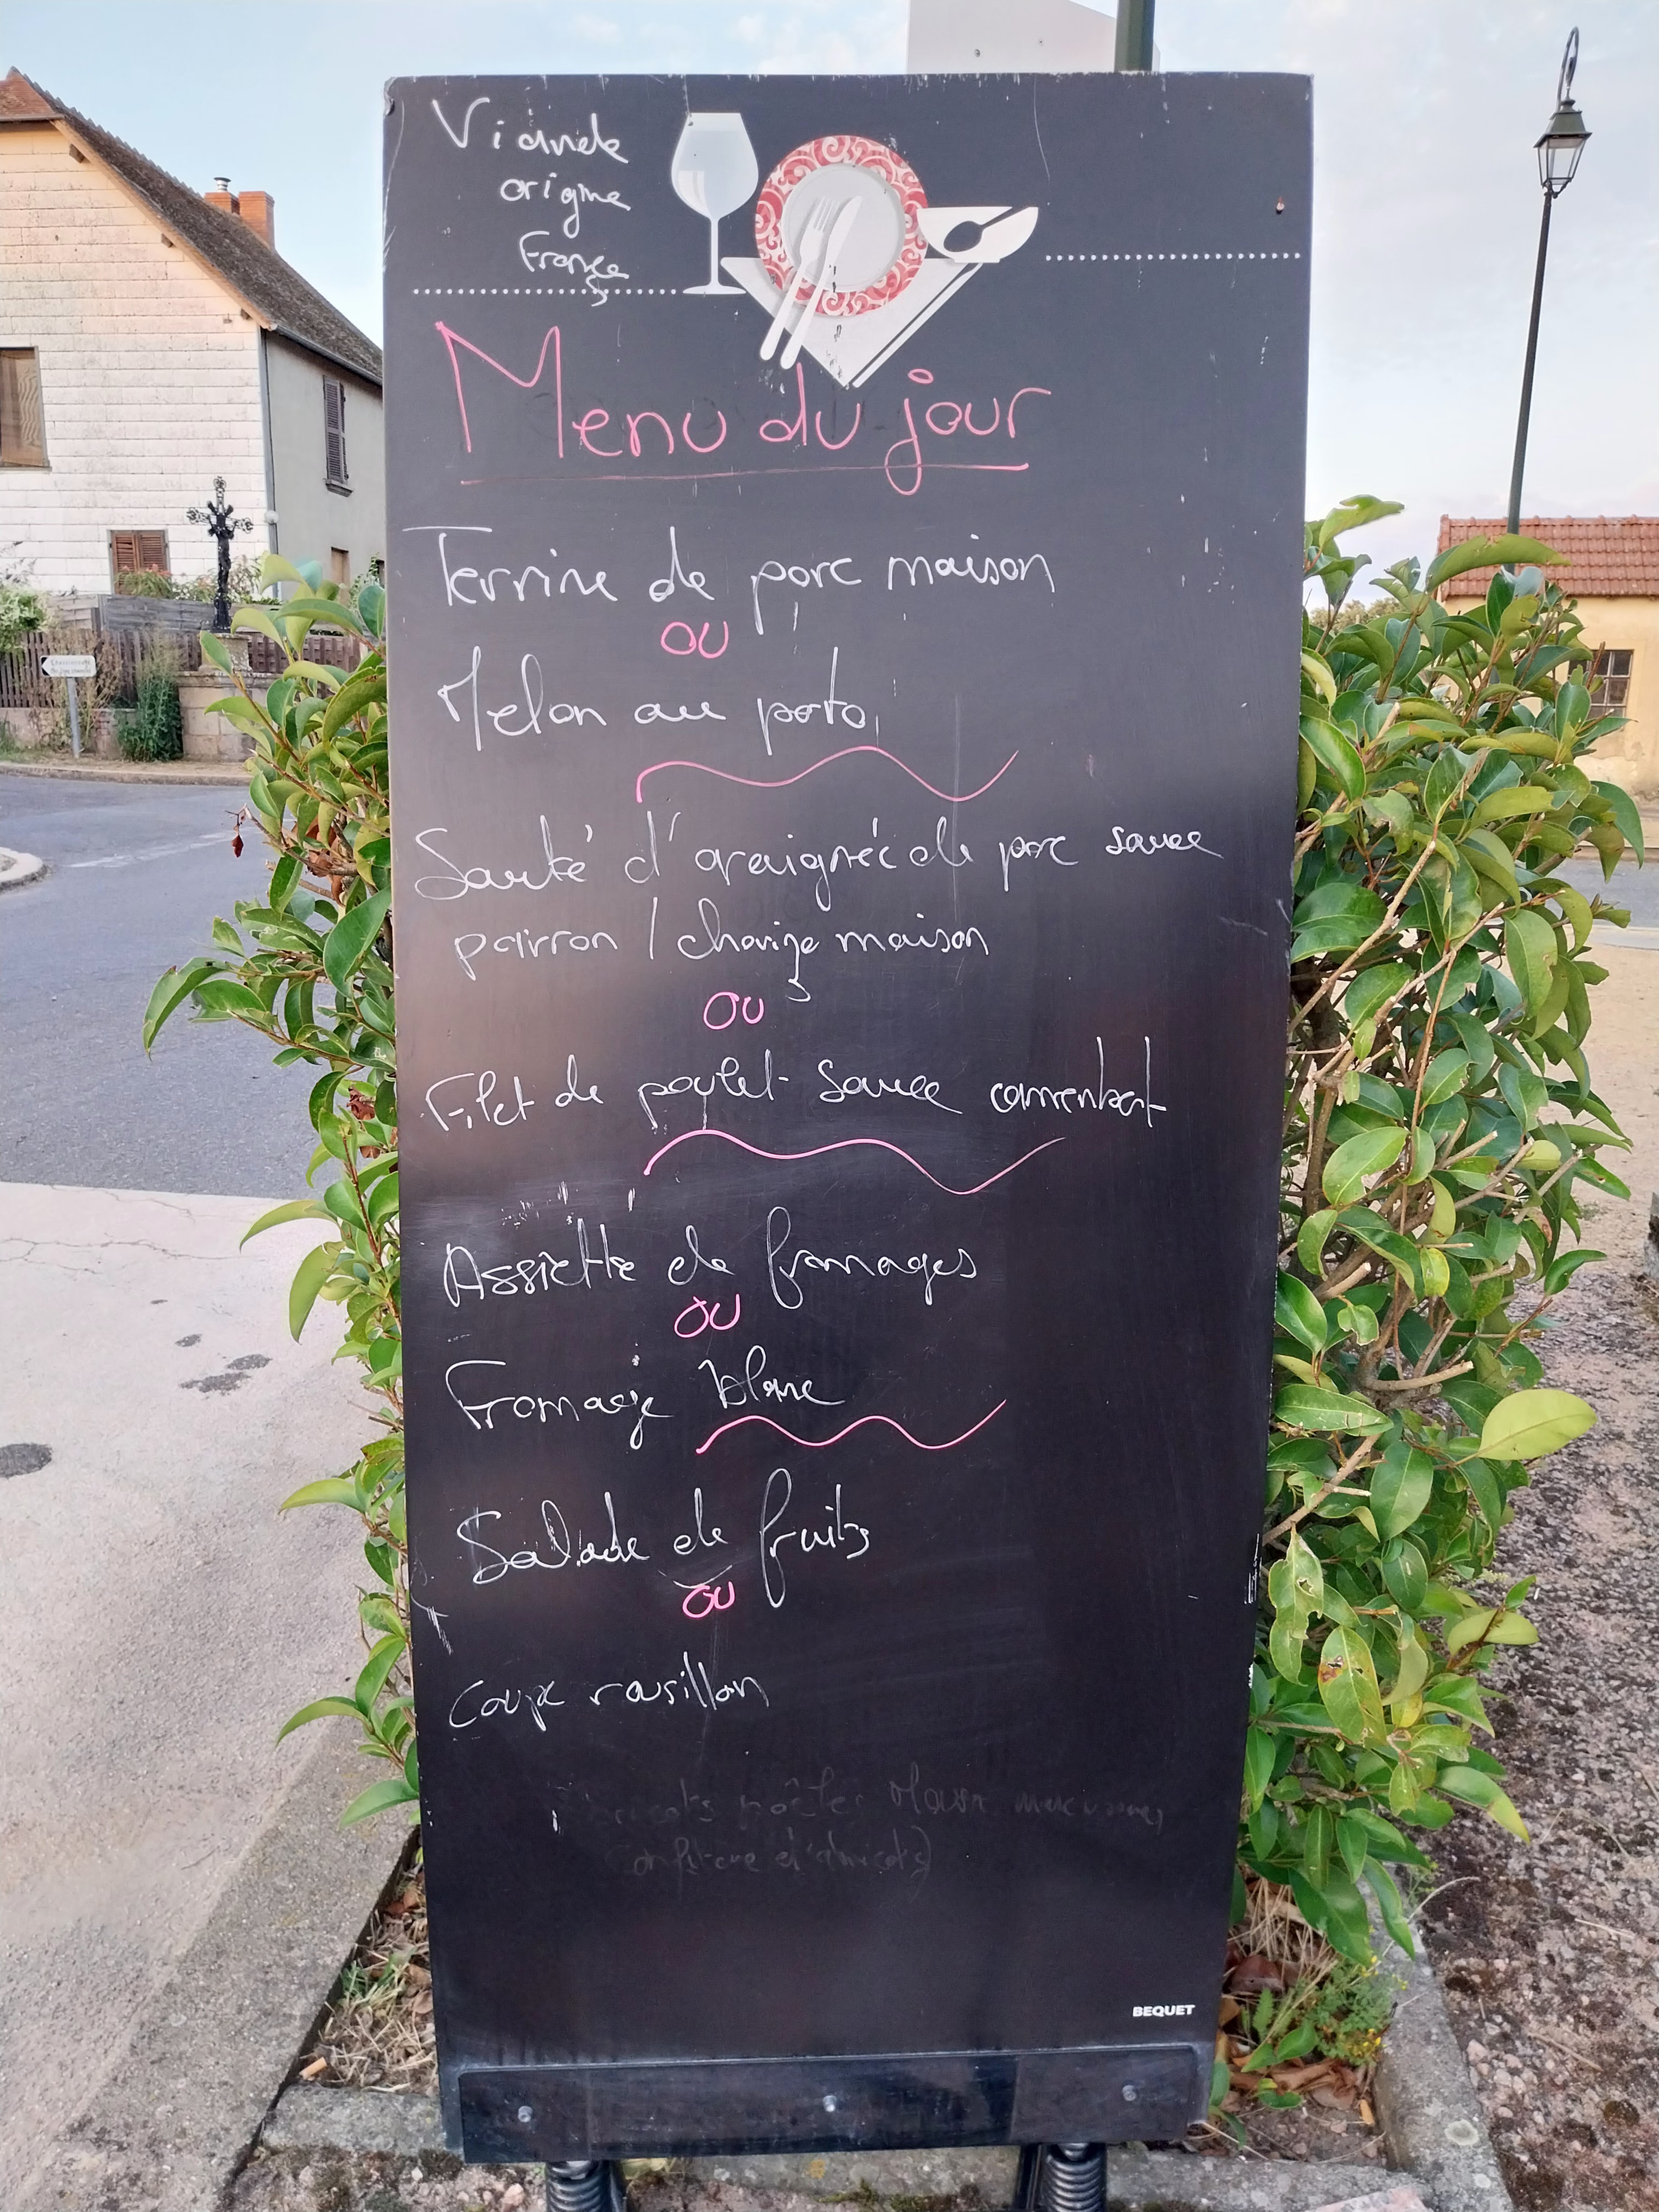 Viande
origine
France
Menu du jour
Terrine de porc maison
ou
Melon au porto
Sauté d'araignée de porc sauce
poivron / chorizo maison
ou
Filet de poulet sauce camembert
Assiette de fromages
ou
Fromage blanc
Salade de fruits
ou
Coupe rousillon
confiture d'abricots)
BEQUET